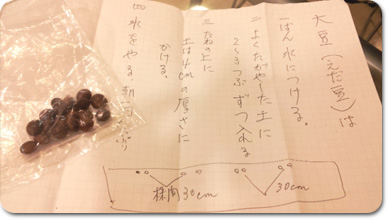 大豆(えだ豆)は
一ばん 水につける。
二 よくたがやした土に
2~3つぶずつ入れる
三 たねの上に
土は4cmの厚さに
かける。
四 水をやる
株間30cm
30cm